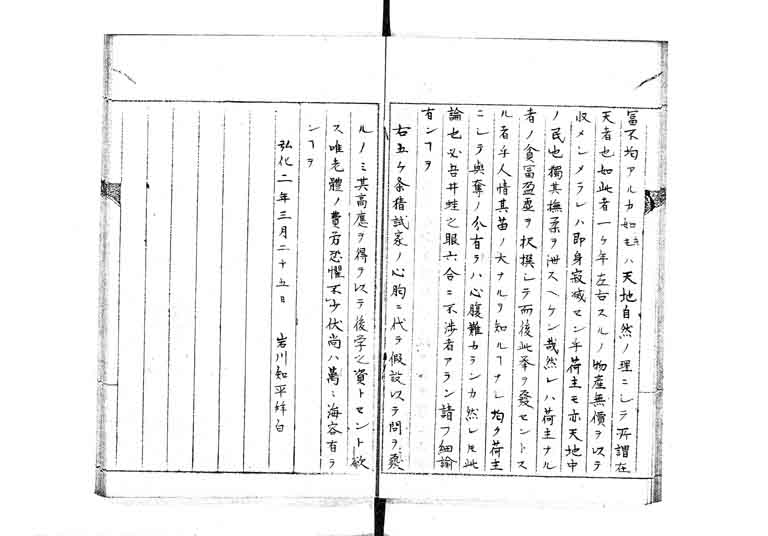 富不均アルカ如キハ天地自然ノ理ニシテ所謂在
天者也如此者一ケ年左右スルノ物産無價ヲ以テ
收メンメラレハ即身寂滅セン乎荷主モ亦天地中
ノ民也獨其撫柔ヲ泄スヘケン哉然レハ荷主ナル
者ノ貧富盈虚ヲ択撰シテ而後此挙ヲ發セントス
ル者乎人情其苗ノ大ナルヲ知ルヿナシ均夕荷主
ニシテ與奪ノ分有ラハ心腹難カランカ然レ𪜈此
論也必吾井蛙之眼六合ニ不渉者アラン請フ細諭
有ンヿヲ
右五ケ条猶試家ノ心胸ニ代テ假設以テ問ヲ發
ルノミ其高應ヲ得テ以テ後学之資トセント欲
ス唯老體ノ費労恐懼不少伏尚ハ萬〻海容有ラ
ンヿヲ
弘化二年三月二十五日 岩川知平拜白